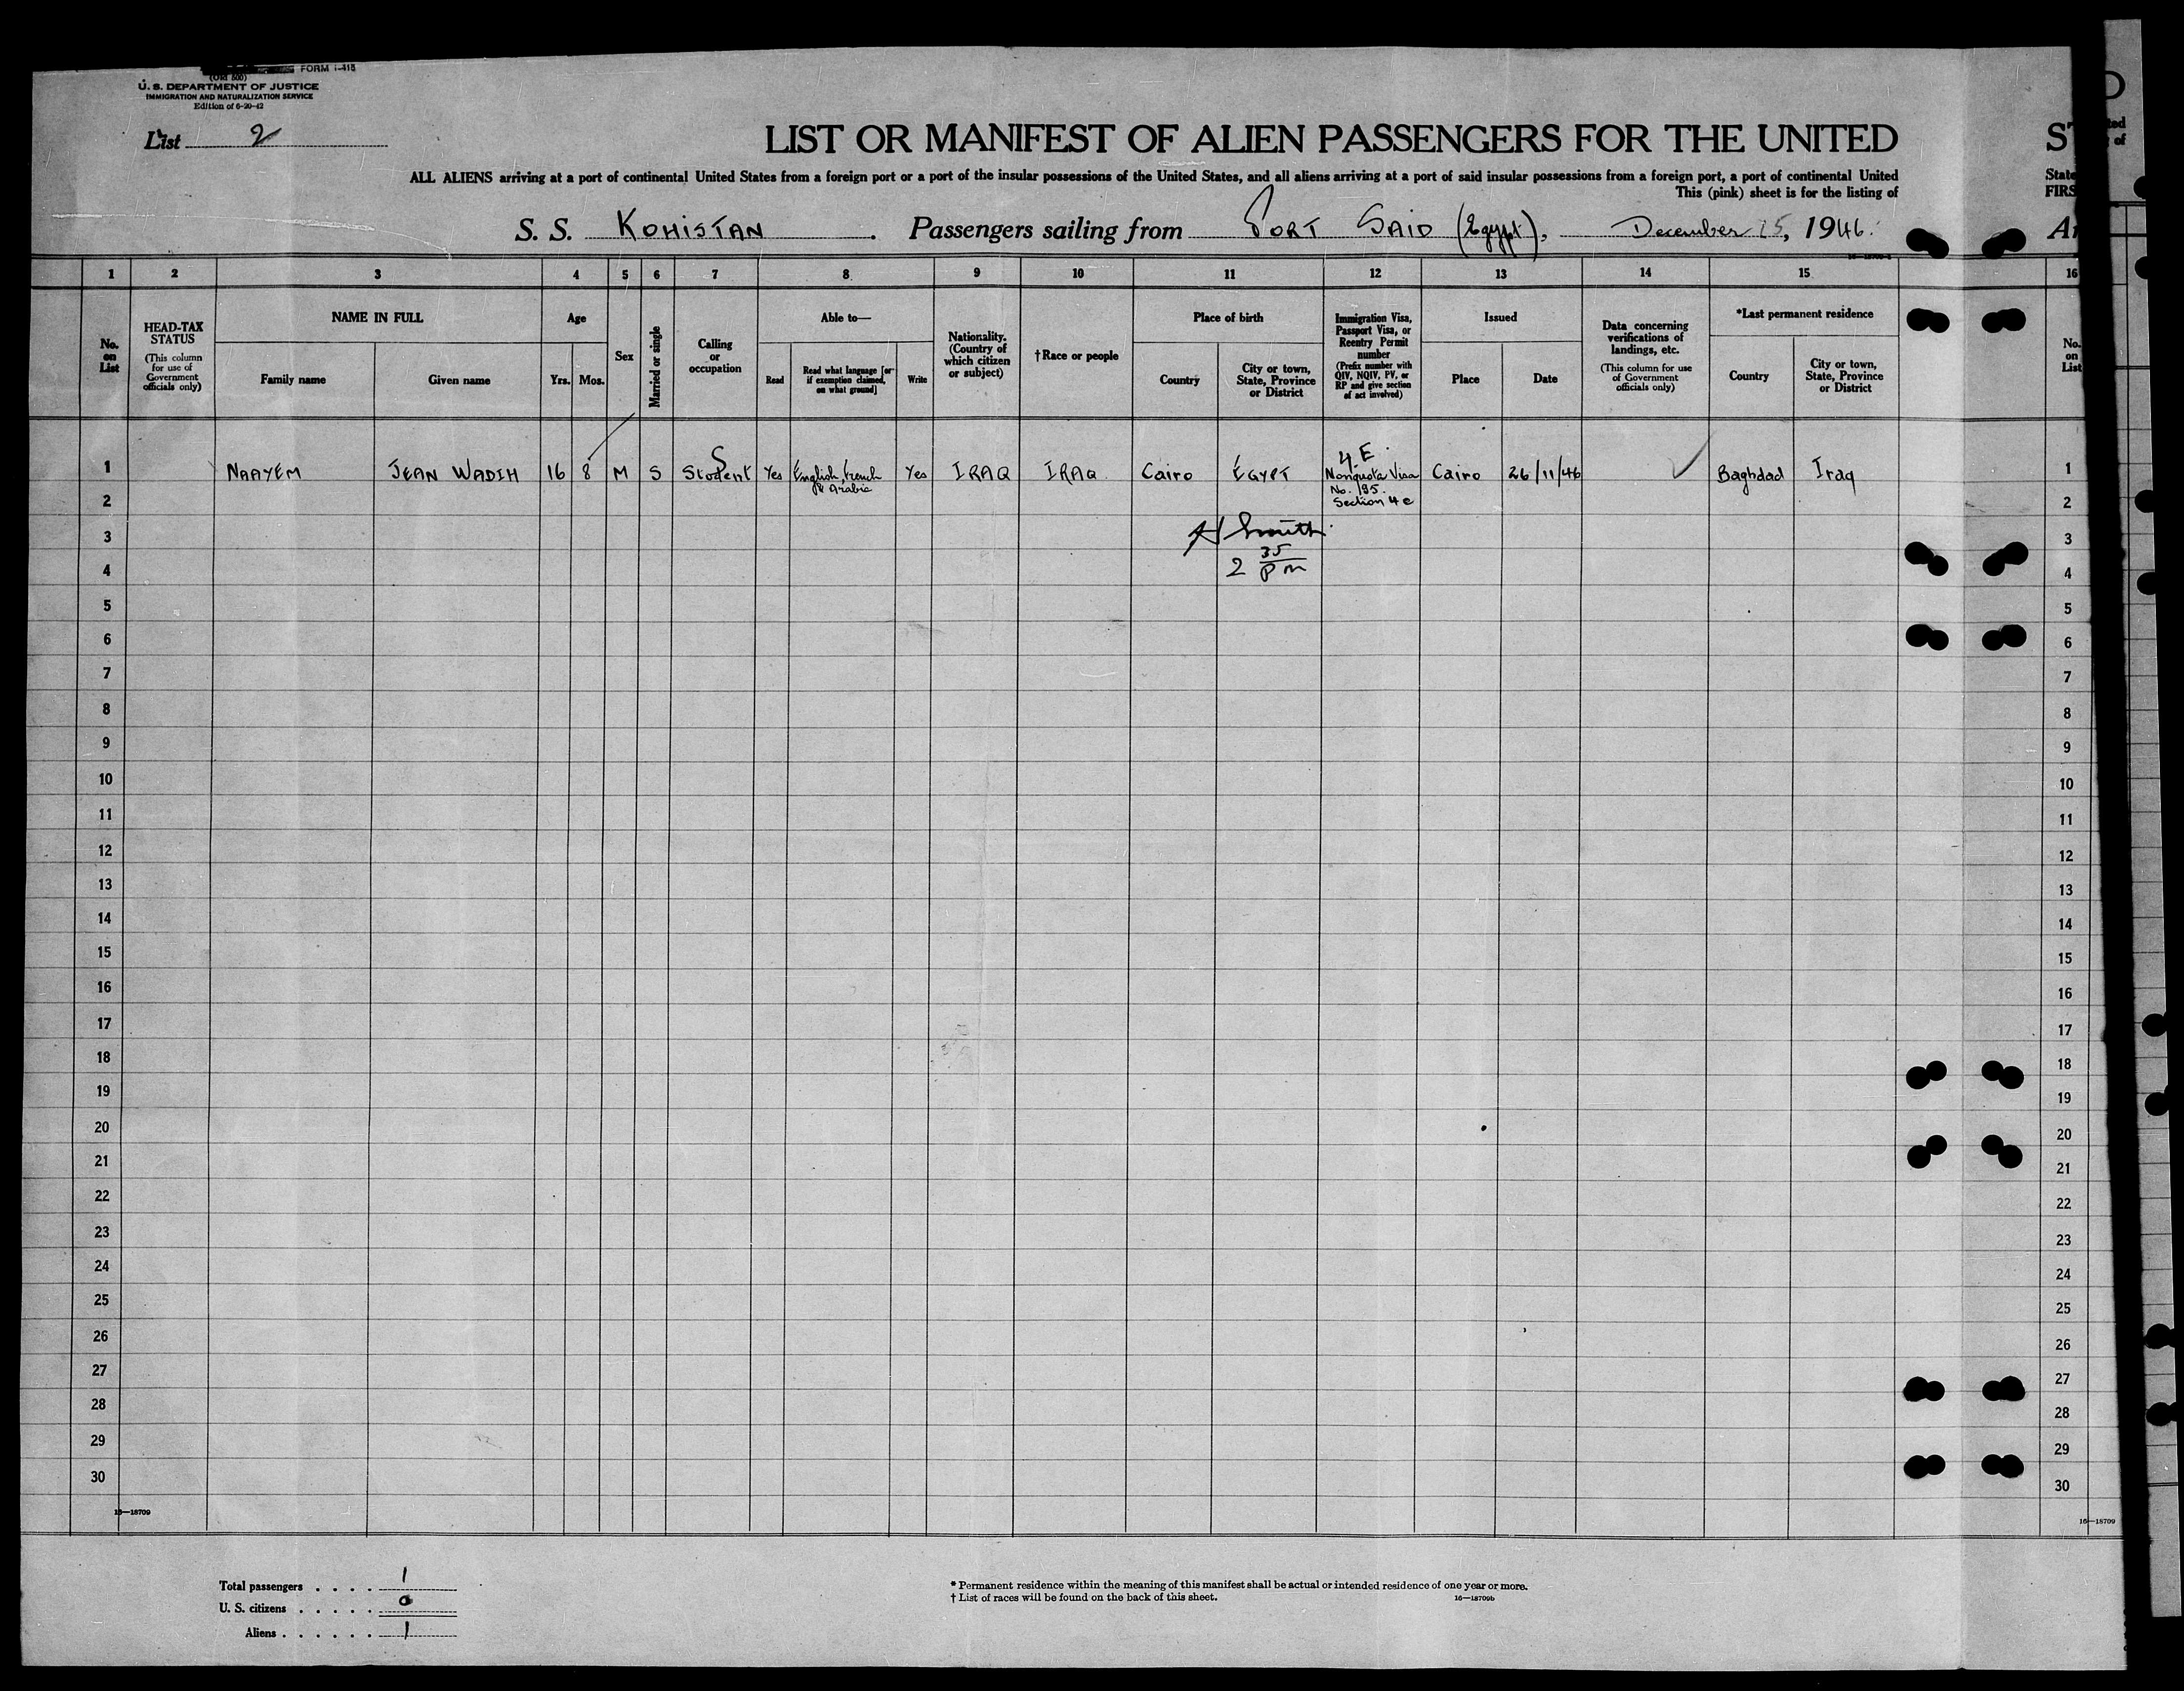 FORM I-415
(Old 500)
U. S. DEPARTMENT OF JUSTICE
IMMIGRATION AND NATURALIZATION SERVICE
Edition of 6-20-42
List 2
LIST OR MANIFEST OF ALIEN PASSENGERS FOR THE UNITED ST
ALL ALIENS arriving at a port of continental United States from a foreign port or a port of the insular possessions of the United States, and all aliens arriving at a port of said insular possessions from a foreign port, a port of continental United State
This (pink) sheet is for the listing of FIRS
S. S. KOHISTAN . Passengers sailing from PORT SAID (Egypt), December 15, 1946.
1 2 3 4 5 6 7 8 9 10 11 12 13 14 15 16
No. on List
HEAD-TAX STATUS
(This column for use of Government officials only)
NAME IN FULL
Family name
Given name
Age
Yrs. Mos.
Sex
Married or single
Calling or occupation
Able to—
Read
Read what language [or if exemption claimed, on what ground]
Write
Nationality. (Country of which citizen or subject)
†Race or people
Place of birth
Country
City or town, State, Province or District
Immigration Visa, Passport Visa, or Reentry Permit number
(Prefix number with QIV, NQIV, PV, or RP and give section of act involved)
Issued
Place
Date
Data concerning verifications of landings, etc.
(This column for use of Government officials only)
*Last permanent residence
Country
City or town, State, Province or District
No. on List
4 E
1 NAAYEM JEAN WADIH 16 8 M S Student Yes English, French & Arabic Yes IRAQ IRAQ Cairo EGYPT Nonquota Visa Cairo 26/11/46 Baghdad Iraq 1
No. 195.
Section 4 e
2 2
H Smith
3 3
2 35 pm
4 4
5 5
6 6
7 7
8 8
9 9
10 10
11 11
12 12
13 13
14 14
15 15
16 16
17 17
18 18
19 19
20 20
21 21
22 22
23 23
24 24
25 25
26 26
27 27
28 28
29 29
30 30
16—18709 16—18709
Total passengers . . . . 1
U. S. citizens . . . . . 0
Aliens . . . . . . 1
* Permanent residence within the meaning of this manifest shall be actual or intended residence of one year or more.
† List of races will be found on the back of this sheet. 16—18709b